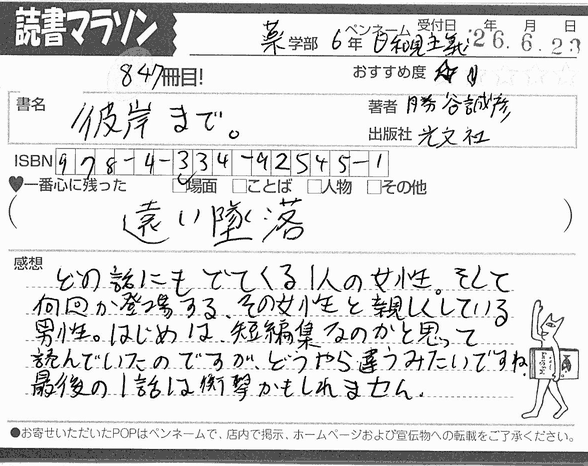 読書マラソン
薬学部 6年 ペンネーム 日和見主義 受付日 '26年6月23日
847冊目! おすすめ度
書名 彼岸まで。 著者 勝谷誠彦
出版社 光文社
ISBN 978-4-334-92545-1
♥一番心に残った □場面 □ことば □人物 □その他
(遠い墜落)
感想
どの話にもでてくる1人の女性。そして
何回か登場する、その女性と親しくしている
男性。はじめは、短編集なのかと思って
読んでいたのですが、どうやら違うみたいですね。
最後の1話は衝撃かもしれません。
●お寄せいただいたPOPはペンネームで、店内で掲示、ホームページおよび宣伝物への転載をご了承ください。